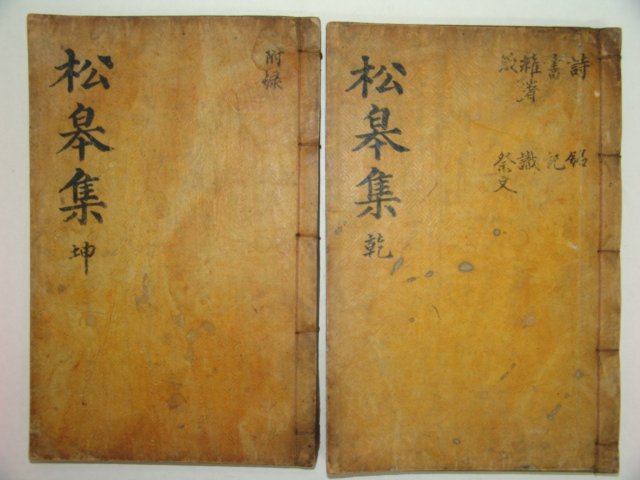 松皋集
乾
詩 銘
書 記
雜著 識
跋 祭文
松皋集
坤
附録